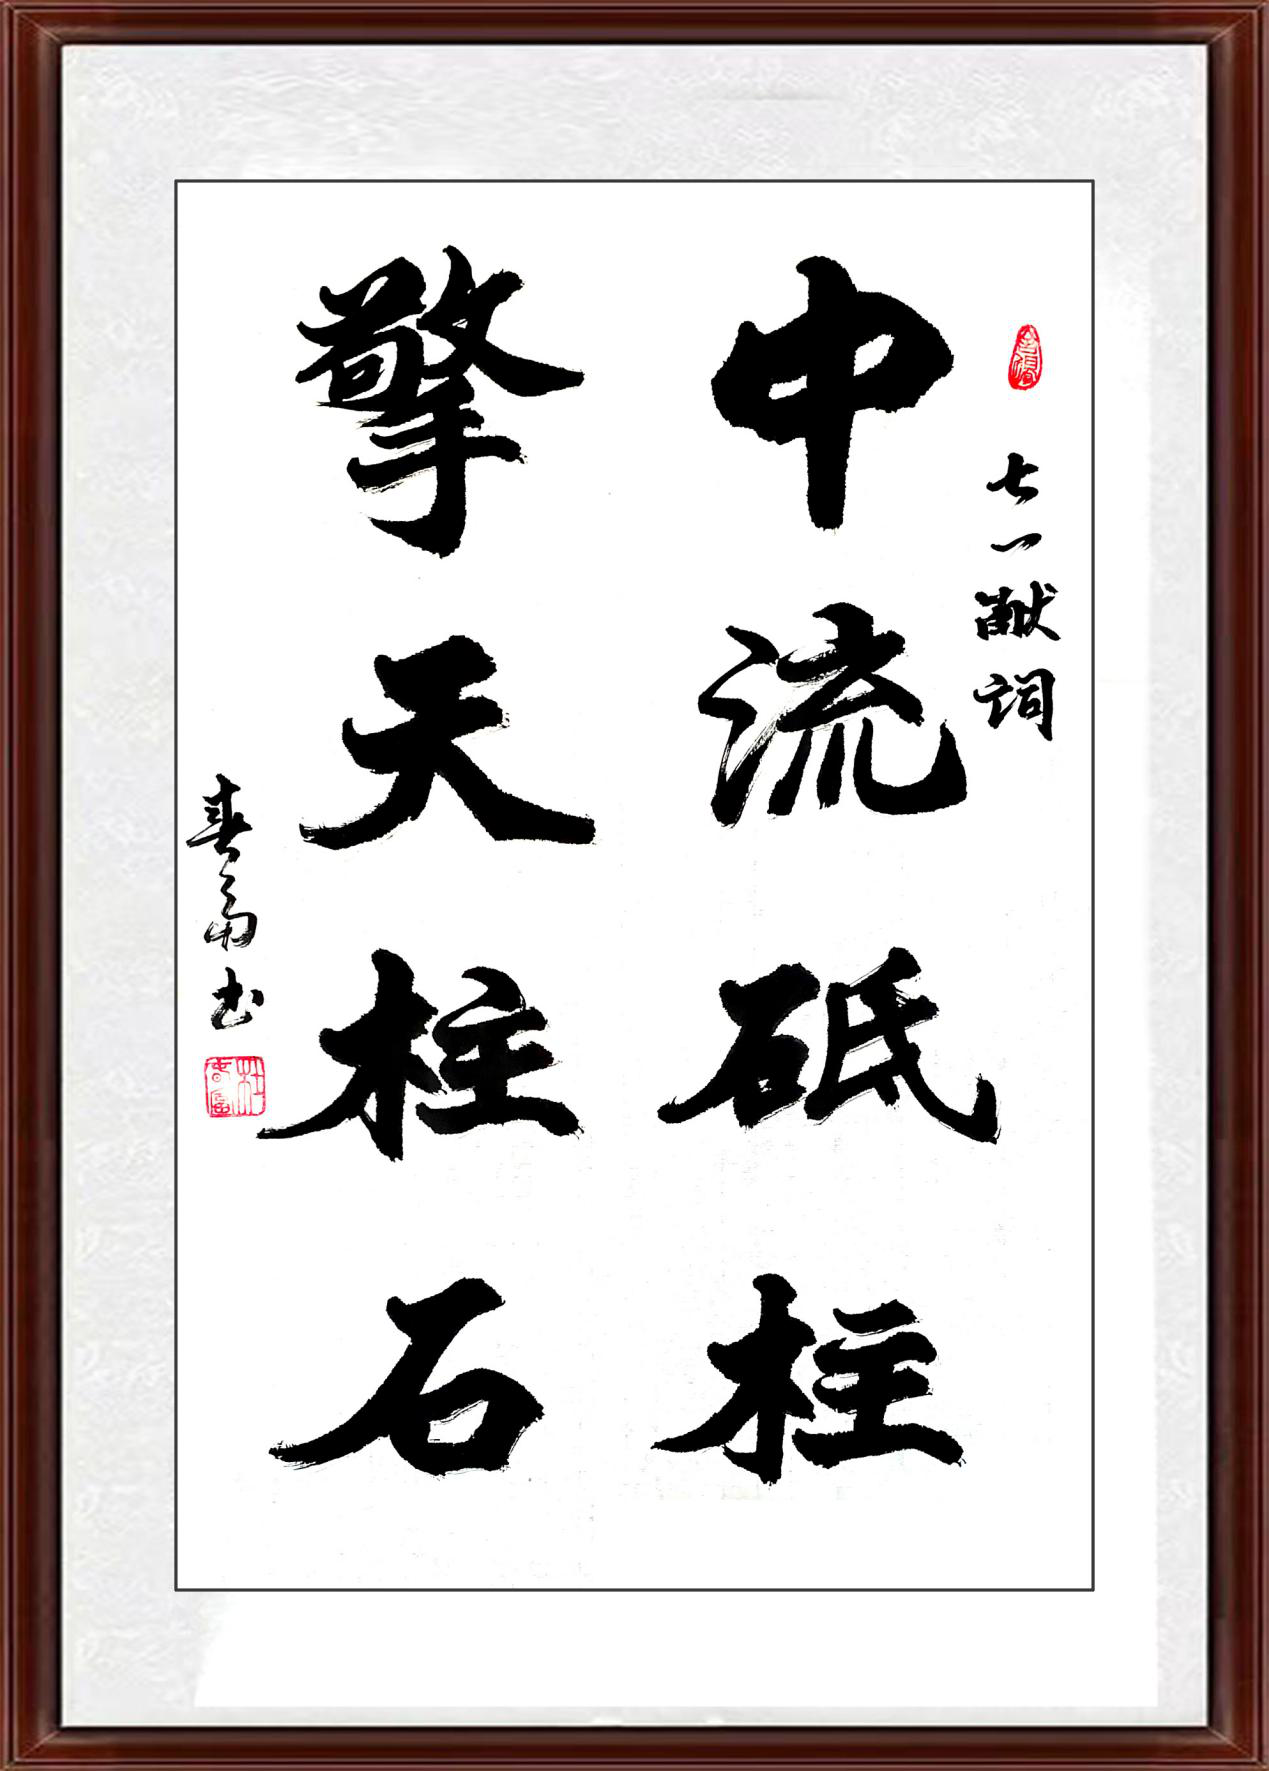 七一献词
中流砥柱
擎天柱石
春富书